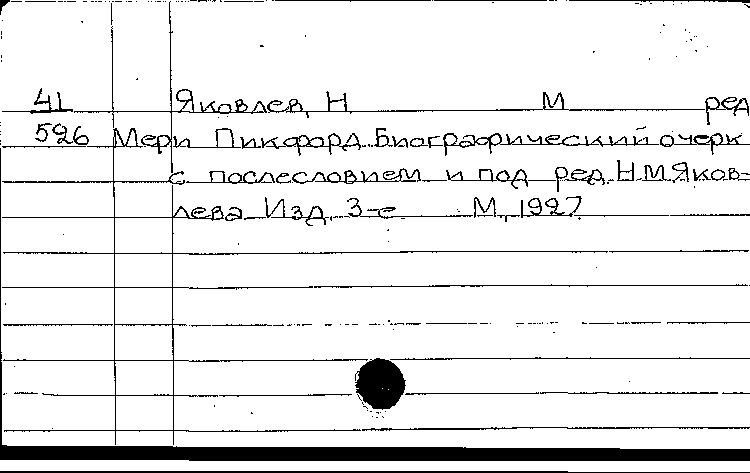 41 Яковлев, Н М ред
526 Мери Пикфорд. Биографический очерк
с послесловием и под ред. Н.М.Яков-
лева. Изд. 3-е М., 1927